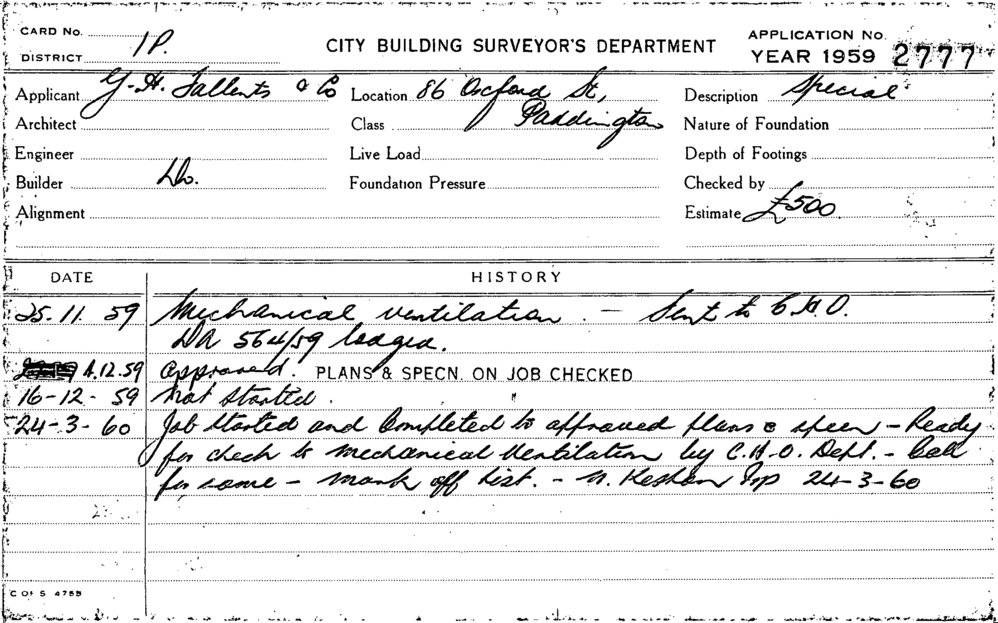 CARD No.
DISTRICT 1P.
CITY BUILDING SURVEYOR'S DEPARTMENT
APPLICATION No.
YEAR 1959 2777
Applicant G. H. Tallents & Co Location 86 Oxford St, Paddington Description Special
Architect Class Nature of Foundation
Engineer Live Load Depth of Footings
Builder Do. Foundation Pressure Checked by
Alignment Estimate £500
DATE HISTORY
25.11.59 Mechanical ventilation. – Sent to C.H.O.
DA 564/59 lodged.
12.59 Approved. PLANS & SPECN. ON JOB CHECKED
16-12-59 Not started.
24-3-60 Job started and Completed to approved plans & specn – Ready
for check to mechanical Ventilation by C.H.O. Dept. – Call
for same – mark off List. – 24-3-60
C OF S 4755